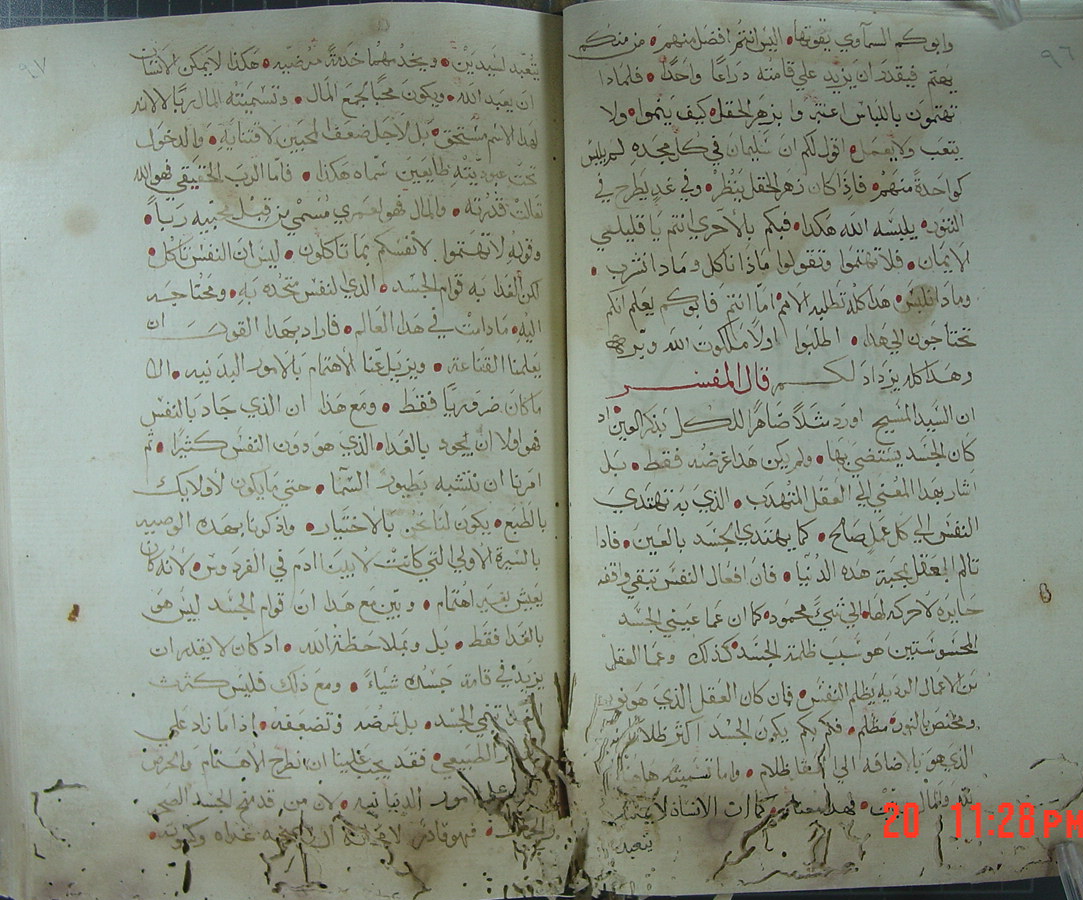 ٩٦
وابوكم السماوي يقوتها• اليس انتم افضل منهم• من منكم
يهتم فيقدر ان يزيد علي قامته دراعًا واحدًا• فلماذا
تهتمون باللباس اعتبروا بزهر الحقل كيف ينموا• ولا
يتعب ولا يعمل• اقول لكم ان سليمان في كل مجده لم يلبس
كواحدة منهم• فاذا كان زهر الحقل ينظر• وفي غدٍ يطرح في
التنور• يلبسه الله هكذا• فبكم بالاحري انتم يا قليلي
الايمان• فلا تهتموا وتقولوا ماذا ناكل وماذا نشرب•
وماذا نلبس• هذا كله تطلبه الامم• اما انتم فابوكم يعلم انكم
تحتاجون الي هذا• اطلبوا اولًا ملكوت الله وبره
وهذا كله يزداد لكم قال المفسر
ان السيد المسيح اورد مثلًا ظاهرًا للكل بذكر العين• اذ
كان الجسد يستضي بها• ولم يكن هذا غرضه فقط• بل
اشار بهذا المعني الي العقل المتهدب• الذي به تهتدي
النفس الي كل عمل صالح• كما يهتدي الجسد بالعين• فاذا
تالم العقل بمحبة هذه الدنيا• فان افعال النفس تبقي واقفه
حايره لا حركه لها• الي شيً محمود• كما ان عما عيني الجسد
المحسوستين هو سبب ظلمة الجسد كذلك وعما العقل
من الاعمال الرديه يظلم النفس• فان كان العقل الذي هو نور
ومختص بالنور مظلم• فكم بكم يكون الجسد اكثر ظلامًا
الذي هو بالاضافه الي العقل ظلام• واما تسميته هاهنا
كما ان الانسان لا يمكنه
يتعبد
٩٧
يتعبد لسيدين• ويخدمهما خدمةً مرضيه• هكذا لا يمكن الانسان
ان يعبد الله• ويكون محبًا لجمع المال• وتسميته المال ربًا لا لانه
لهذا الاسم مستحق• بل لاجل ضعف المحبين لاقتنايه• والدخول
تحت عبوديته طايعين سماه هكذا• فاما الرب الحقيقي فهو الله
تعالت قدرته• والمال فهو لعمري مسمي من قبل محبيه ربًا•
وقوله لا تهتموا لانفسكم بما تاكلون• ليس ان النفس تاكل•
لكن الغدا به قوام الجسد• الذي النفس متحده به• ومحتاجه
اليه• مادامت في هذا العالم• فاراد بهذا القول ان
يعلمنا القناعة• ويزيل عنا الاهتمام بالامور البدنيه• الا
ما كان ضروريًا فقط• ومع هذا ان الذي جاد بالنفس
فهو اولا ان يجود بالغدا• الذي هو دون النفس كثيرًا• ثم
امرنا ان نتشبه بطيور السما• حتي ما يكون لاولايك
بالطبع• يكون لنا نحن بالاختيار• واذكرنا بهذه الوصيه
بالسيرة الاولي التي كانت لابينا ادم في الفردوس• لانه كان
يعيش بغير اهتمام• وبين مع هذا ان قوام الجسد ليس هو
بالغدا فقط• بل وبملاحظة الله• اذ كان لا يقدر ان
يزيد في قامة جسده شياءً• ومع ذلك فليس كثرت
تنمي الجسد• بل تمرضه وتضعفه• اذا ما زاد علي
الطبيعي• فقد يجب علينا ان نطرح الاهتمام والحرص
الدنيانيه• لان من قد